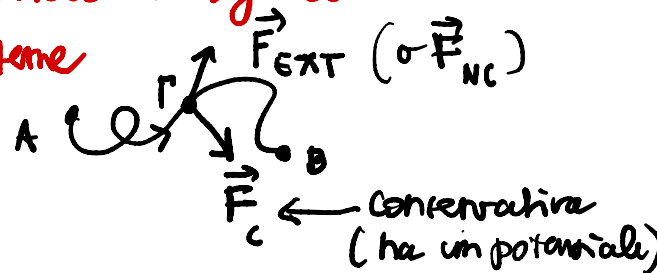 F⃗EXT (o F⃗NC)
Γ
A
B
F⃗c ← conservativa
(ha un potenziale)